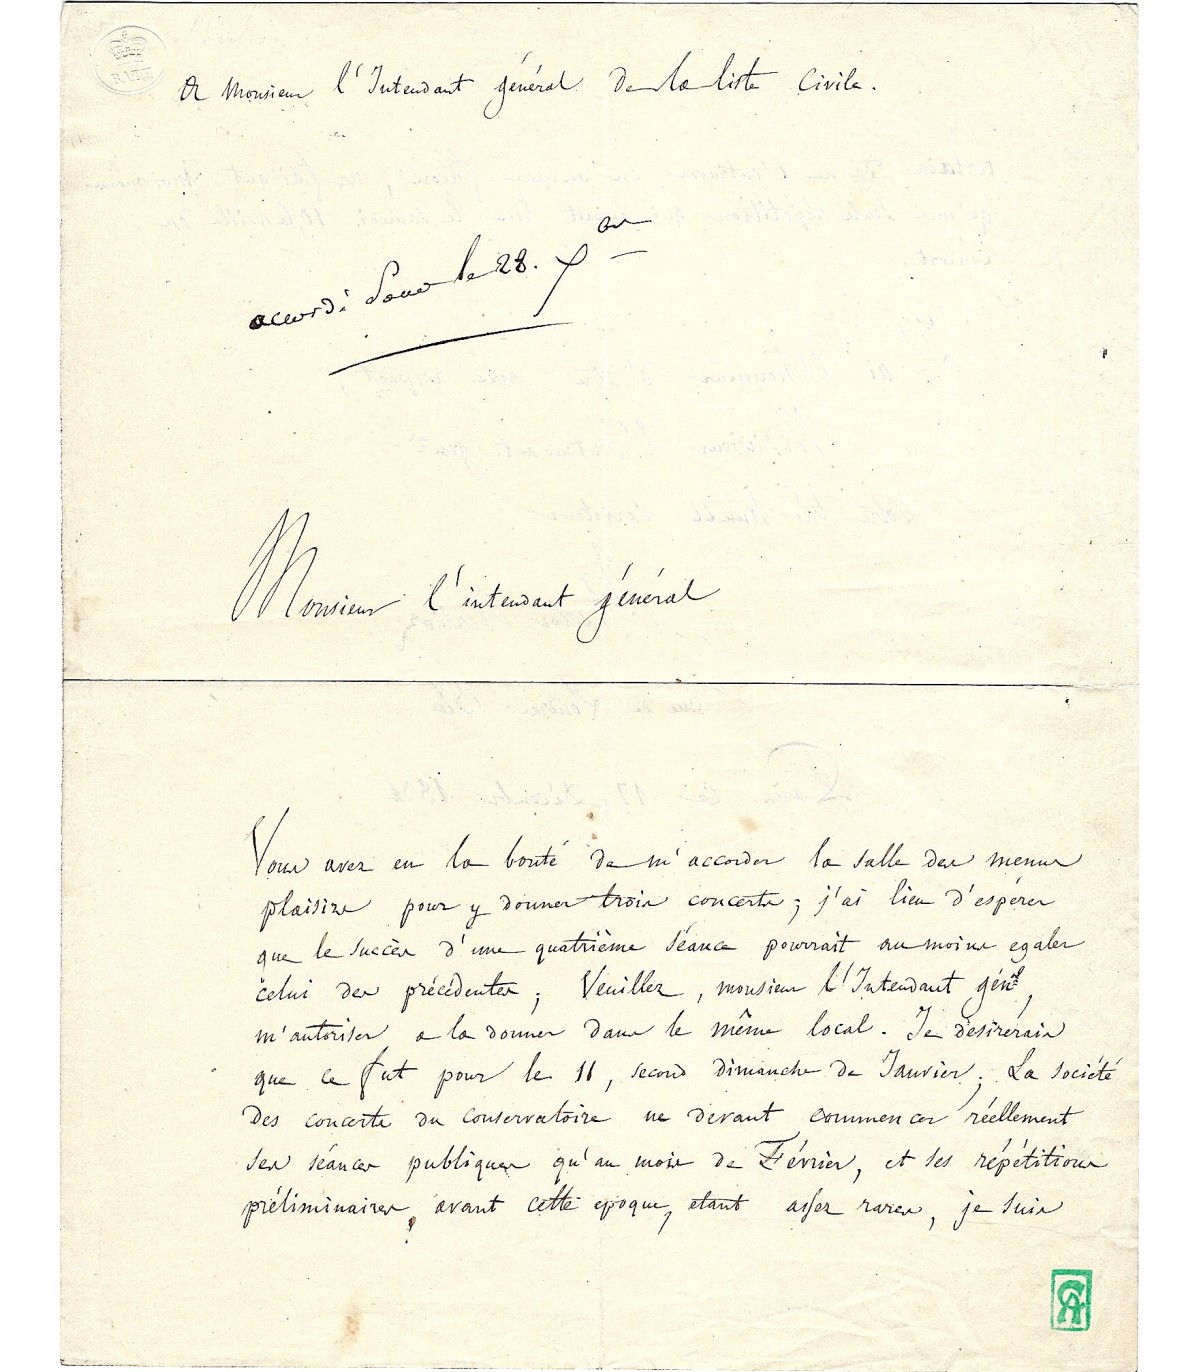 BATH
A Monsieur l'Intendant général de la liste Civile.
accordé pour le 28. Xbre
Monsieur l'intendant général
Vous avez eu la bonté de m'accorder la salle des menus
plaisirs pour y donner trois concerts; j'ai lieu d'espérer
que le succès d'une quatrième séance pourrait au moins egaler
celui des précédentes; Veuillez, monsieur l'Intendant génal,
m'autoriser a la donner dans le même local. Je désirerais
que ce fut pour le 11, second dimanche de Janvier; La société
des concerts du conservatoire ne devant commencer réellement
ses séances publiques qu'au mois de Février, et ses répétitions
préliminaires, avant cette epoque, etant assez rares, je suis